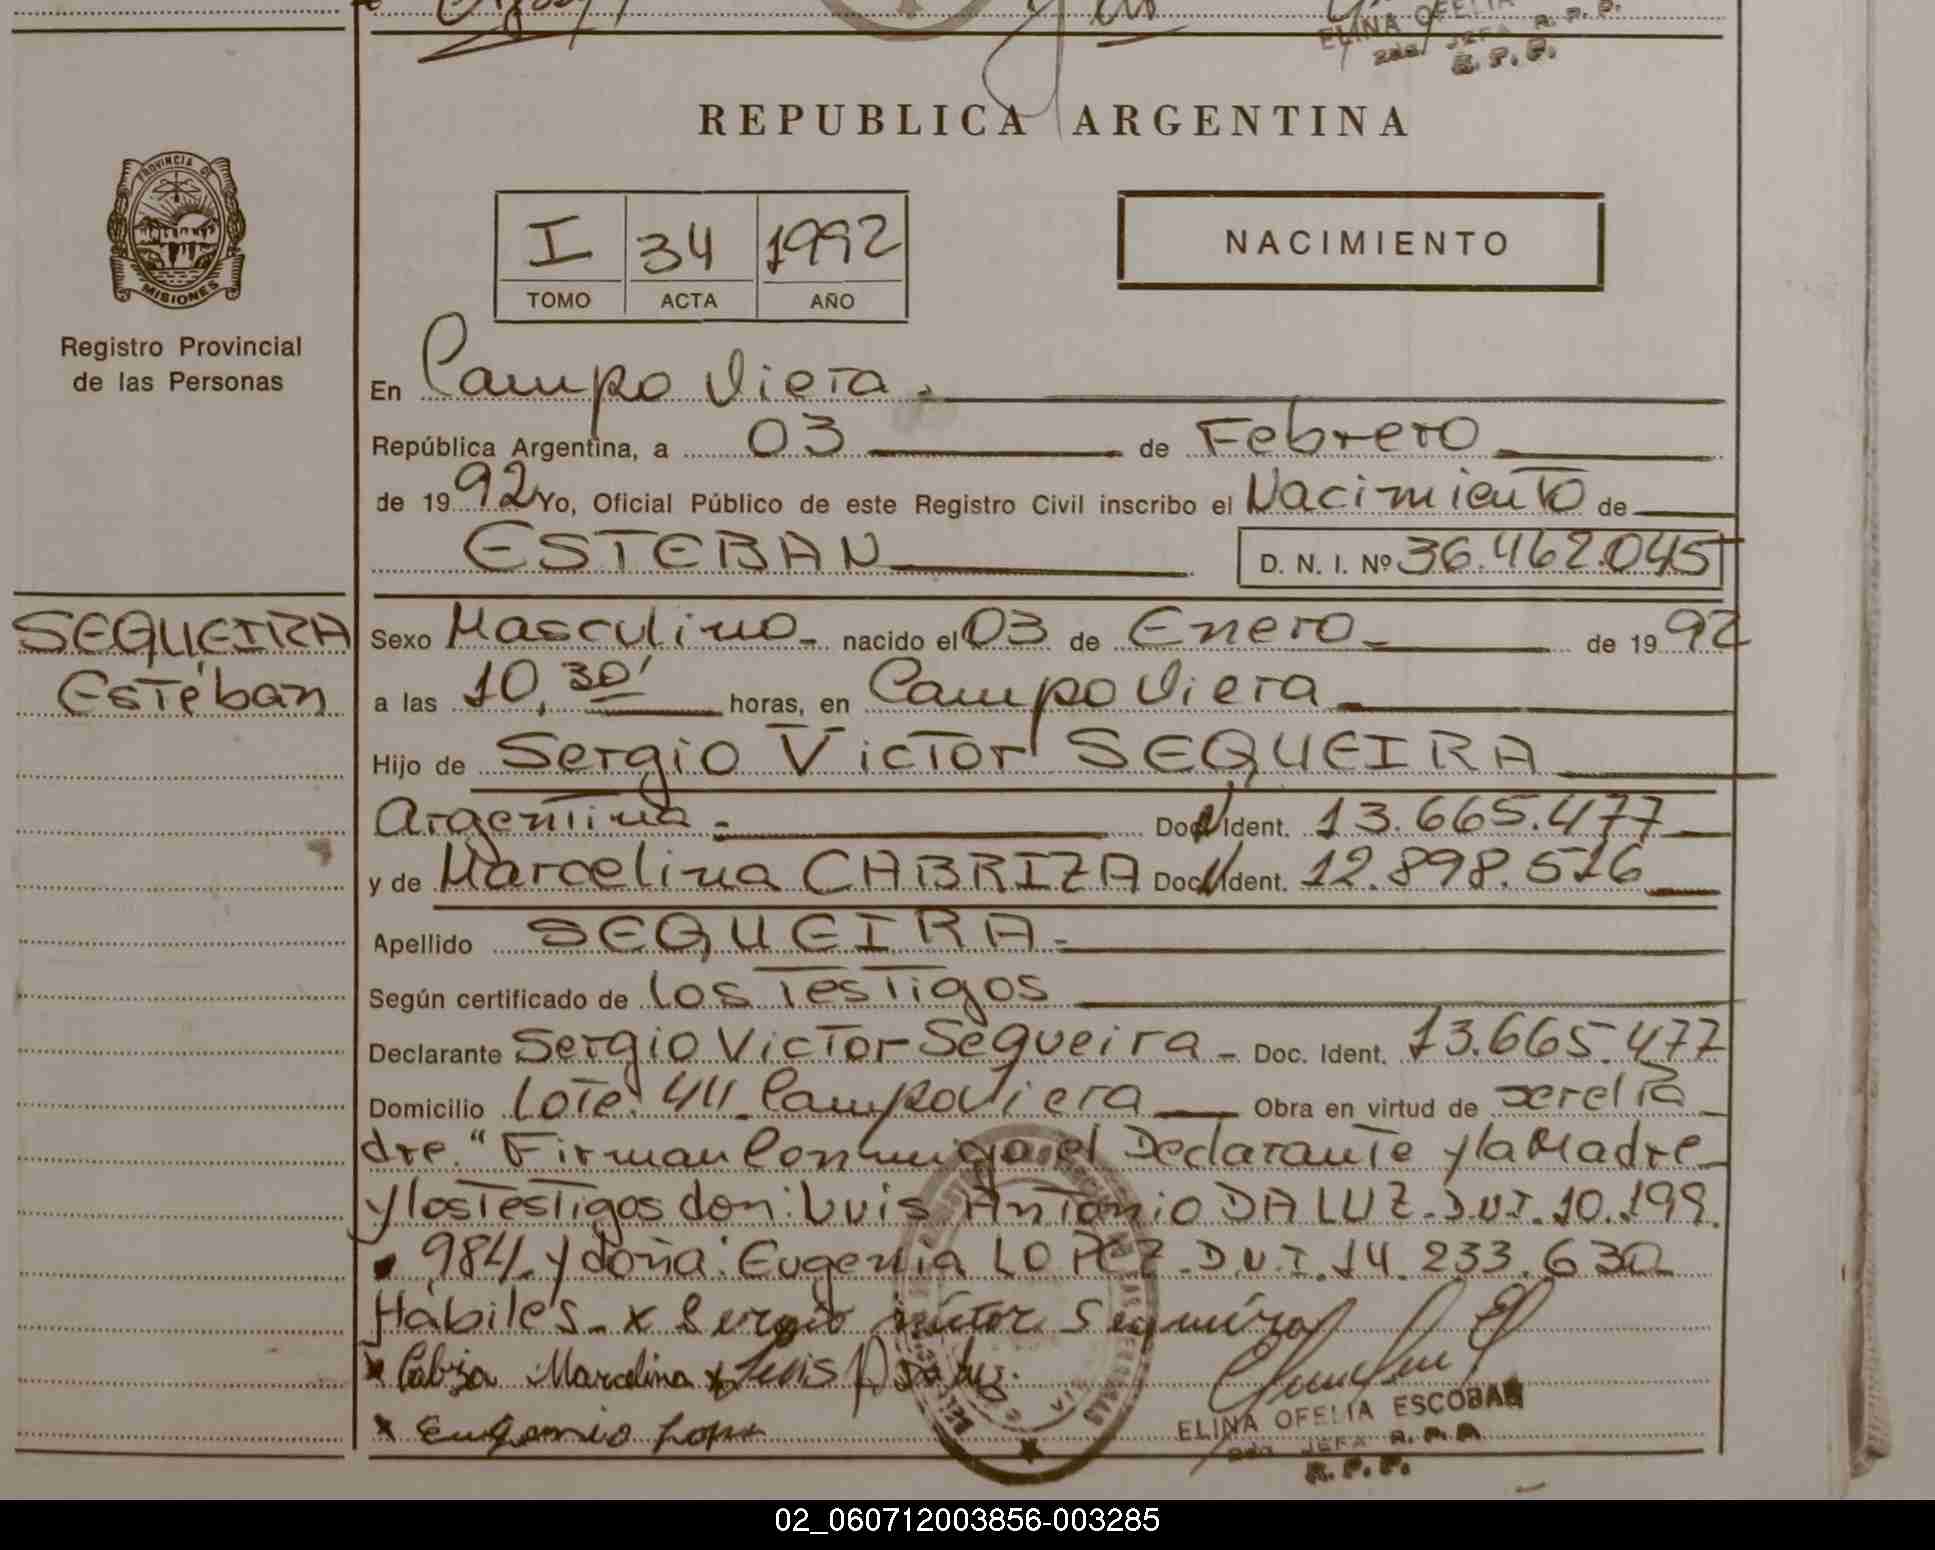 ELINA OFELIA
2da JEFA R. P. P.
R. P. P.
REPUBLICA ARGENTINA
PROVINCIA DE
MISIONES
I 34 1992
TOMO ACTA AÑO
NACIMIENTO
Registro Provincial
de las Personas
En Campo Viera.
República Argentina, a 03 de Febrero
de 1992 Yo, Oficial Público de este Registro Civil inscribo el Nacimiento de
ESTEBAN D. N. I. Nº 36.462.045
SEQUEIRA
Esteban
Sexo Masculino - nacido el 03 de Enero - de 1992
a las 10,30' horas, en Campo Viera
Hijo de Sergio Victor SEQUEIRA
Argentina - Doc. Ident. 13.665.477
y de Marcelina CABRIZA Doc. Ident. 12.898.516
Apellido SEQUEIRA -
Según certificado de los Testigos
Declarante Sergio Victor Sequeira - Doc. Ident. 13.665.477
Domicilio Lote 411 Campo Viera Obra en virtud de ser el Pa
dre." Firman Conmigo el Declarante y la Madre
y los Testigos don: Luis Antonio DA LUZ. D.N.I. 10.199.
984. y doña: Eugenia LOPEZ. D.N.I. 14.233.630
Hábiles. x Sergio Victor Sequeira
x Cabiza Marcelina x Luis A Da luz.
x Eugenia Lopez
ELINA OFELIA ESCOBAR
2da JEFA R. P. P.
R. P. P.
02_060712003856-003285